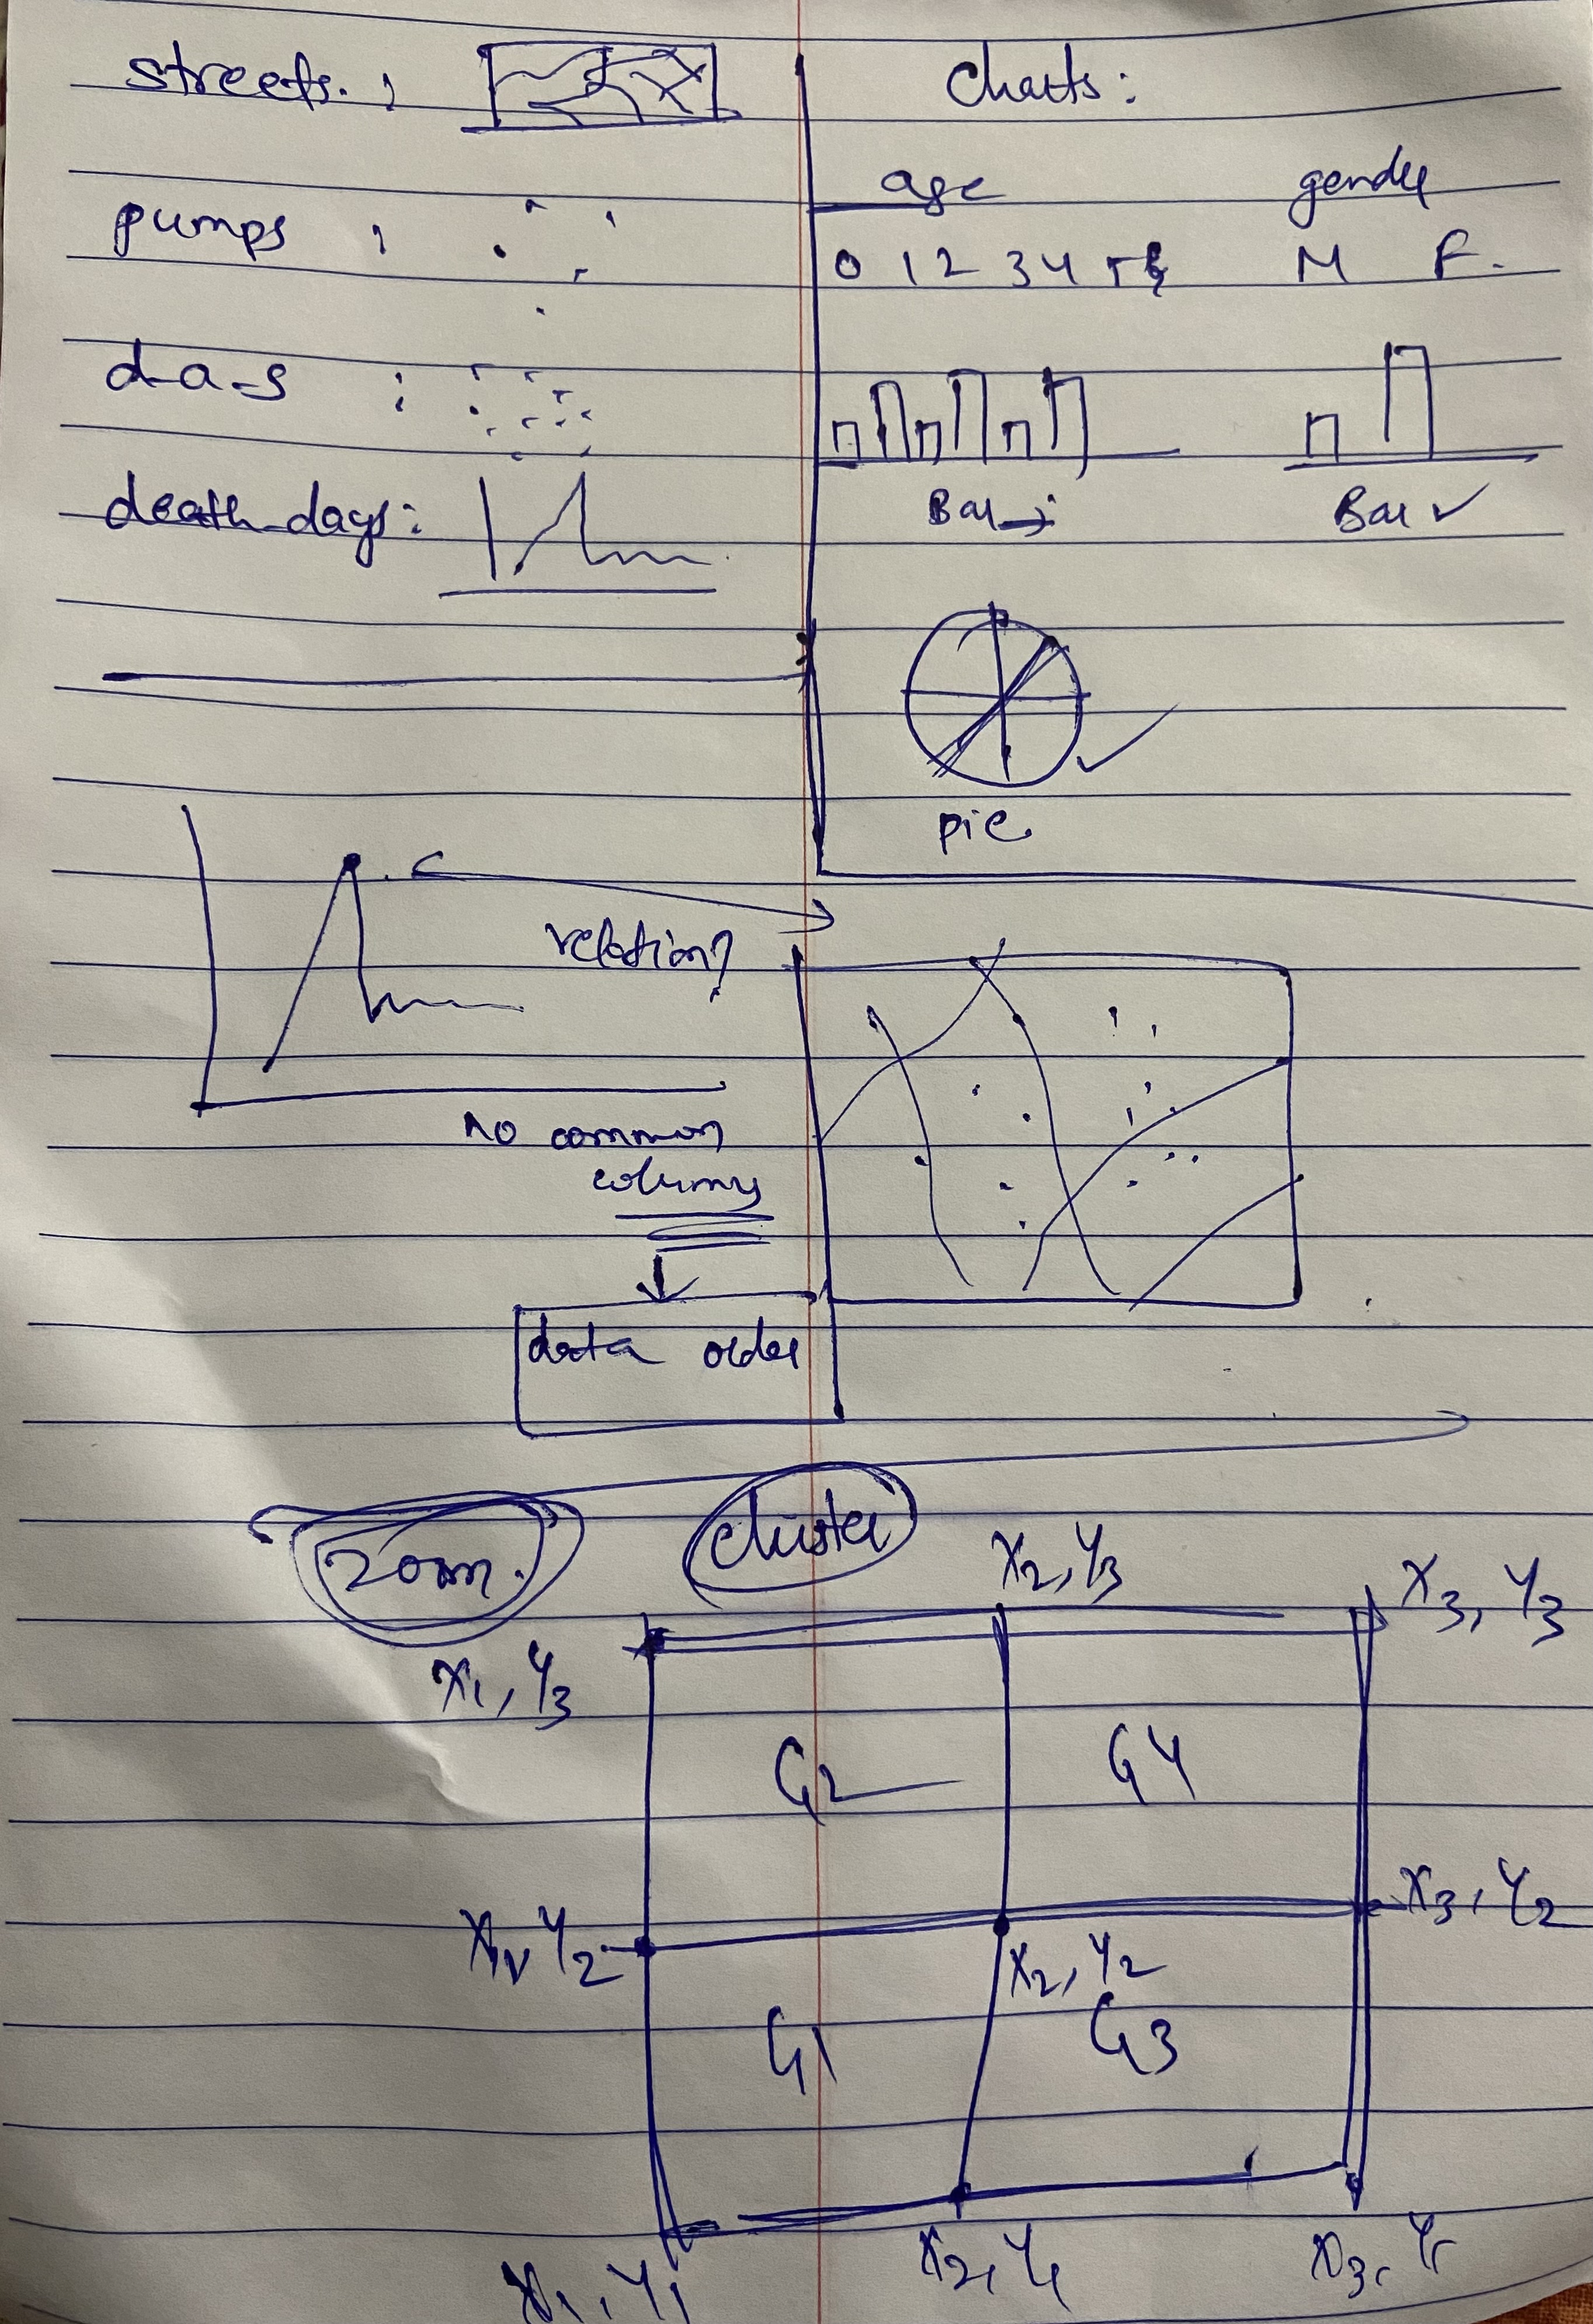 streets. :
pumps :
d-a-s :
death-days:
Charts:
age gender
0 1 2 3 4 5
M F.
Bar
Bar ✓
pie
relation?
no common
columns
data order
zoom.
cluster
X2, Y3
X3, Y3
X1, Y3
G2 G4
X3, Y2
X1, Y2
X2, Y2
G1 G3
X1, Y1
X2, Y1
X3, Y1